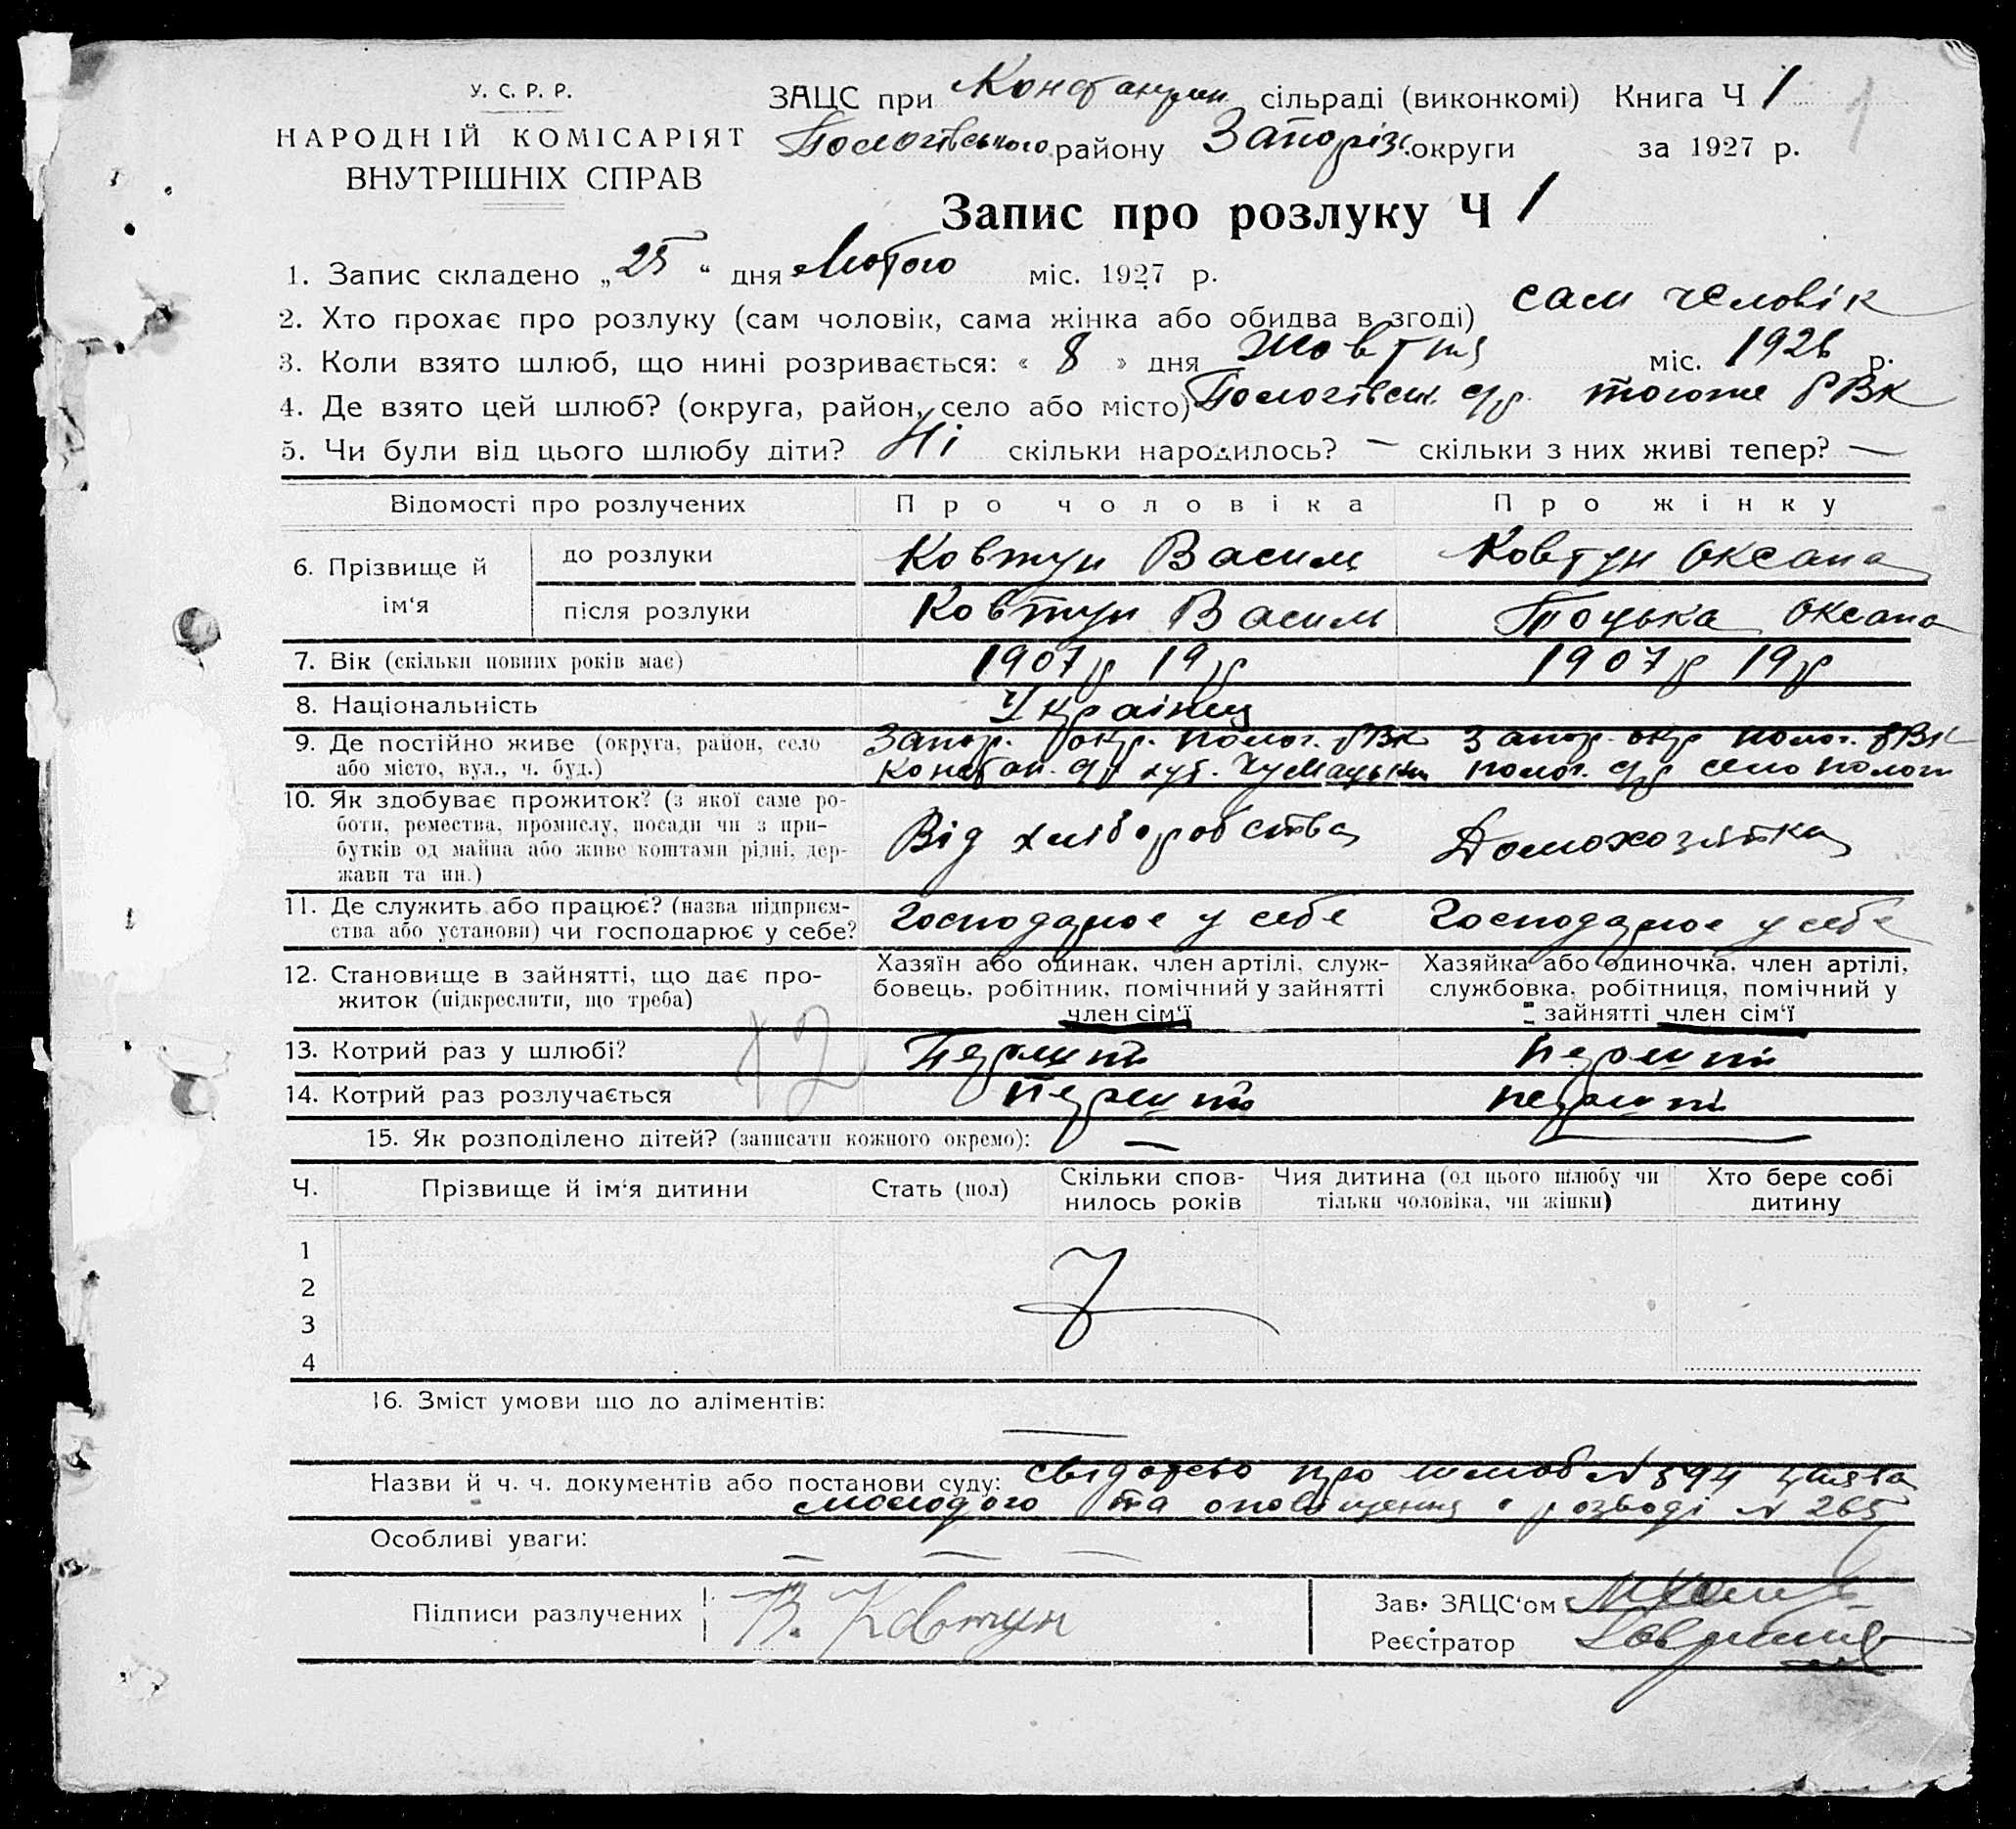 У. С. Р. Р.
НАРОДНІЙ КОМІСАРІЯТ
ВНУТРІШНІХ СПРАВ
ЗАЦС при Констанрин сільраді (виконкомі) Книга Ч 1
1
Пологівського району Запоріз. округи за 1927 р.
Запис про розлуку Ч 1
1. Запис складено „25“ дня Лютого міс. 1927 р.
2. Хто прохає про розлуку (сам чоловік, сама жінка або обидва в згоді) сам человік
3. Коли взято шлюб, що нині розривається: « 8 » дня Жовтня міс. 1926 р.
4. Де взято цей шлюб? (округа, район, село або місто) Пологівськ. с/р. тогоже РВК
5. Чи були від цього шлюбу діти? Ні скільки народилось? — скільки з них живі тепер? —
Відомості про розлучених Про чоловіка Про жінку
6. Прізвище й ім‘я до розлуки Ковтун Василь Ковтун Оксана
після розлуки Ковтун Василь Тоцька Оксана
7. Вік (скільки повних років має) 1907 р 19 р 1907 р 19 р
8. Національність Українці
9. Де постійно живе (округа, район, село Запор. окр. полог. РВК Запор. окр полог. РВК
або місто, вул., ч. буд.) Констан. с/р хут. Чумацький полог. с/р село пологи
10. Як здобуває прожиток? (з якої саме ро-
боти, ремества, промислу, посади чи з при-
бутків од майна або живе коштами рідні, дер-
жави та ин.)
Від хліборобства Домохозяїтка
11. Де служить або працює? (назва підприєм-
ства або установи) чи господарює у себе?
Господарює у себе Господарює у себе
12. Становище в зайнятті, що дає про-
житок (підкреслити, що треба)
Хазяїн або одинак, член артілі, служ-
бовець, робітник, помічний у зайнятті
член сім‘ї
Хазяйка або одиночка, член артілі,
службовка, робітниця, помічний у
зайнятті член сім‘ї
13. Котрий раз у шлюбі? Перший перший
14. Котрий раз розлучається перший перший
15. Як розподілено дітей? (записати кожного окремо): —
Ч. Прізвище й ім‘я дитини Стать (пол) Скільки спов-
нилось років Чия дитина (од цього шлюбу чи
тільки чоловіка, чи жінки) Хто бере собі
дитину
1
2
3
4
16. Зміст умови що до аліментів:
—
Назви й ч. ч. документів або постанови суду: свідотство про шлюб № 594 заява
молодого та оповіщення о розводі № 265
Особливі уваги: — — —
Підписи разлучених В. Ковтун Зав. ЗАЦС‘ом
Реєстратор